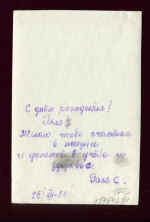 С днём рождения!
Галя!
Желаю тебе счастья
в жизни
и успехов в учёбе и
здоровья.
Галя С.
25/XII-50.
100